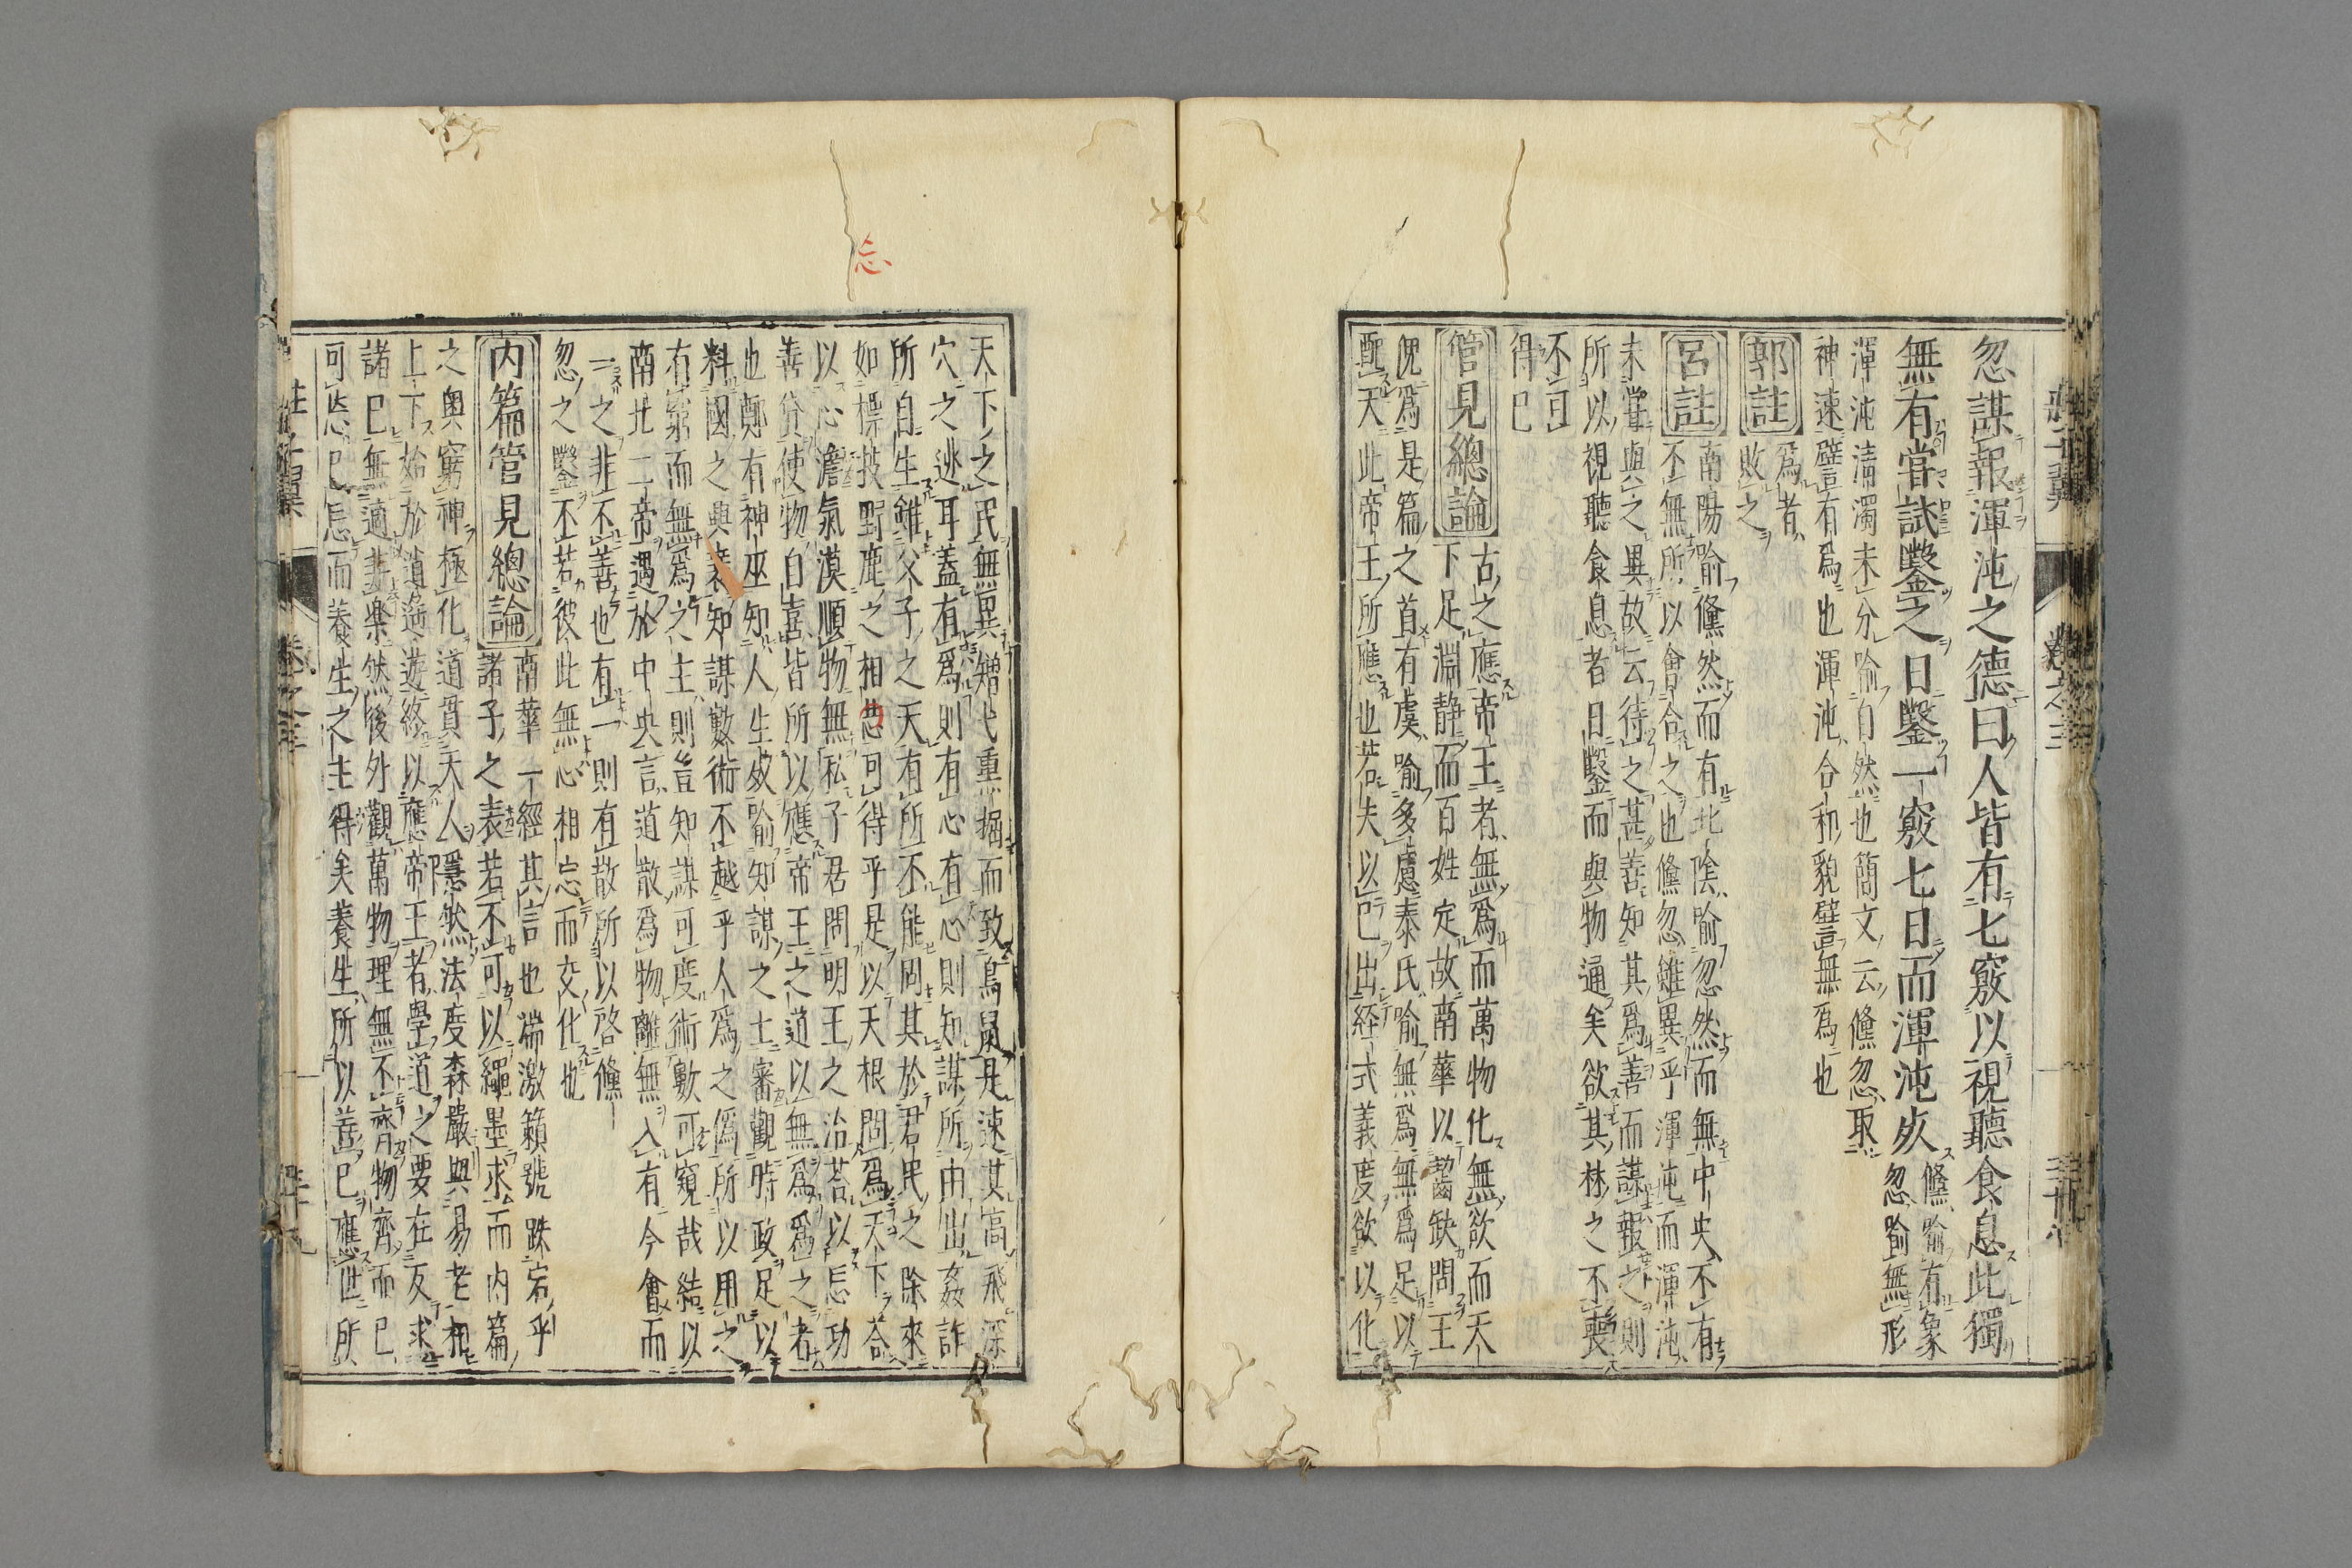 忽謀報渾沌之德曰人皆有七竅以視聽食息此獨
無有嘗試鑿之日鑿一竅七日而渾沌死
儵喻有象
忽喻無形
渾沌清濁未分喻自然也簡文云儵忽取
神速譬有爲也渾沌合和貌譬無爲也
郭註
爲者
敗之
呂註
南陽喻儵然而有北陰喻忽然而無中央不有
不無所以會合之也儵忽雖異乎渾沌而渾沌
未嘗與之異故云待之甚善知其爲善而謀報之則
所以視聽食息者日鑿而與物通矣欲其林之不喪
不可
得已
管見總論
古之應帝王者無爲而萬物化無欲而天
下足淵静而百姓定故南華以齧缺問王
倪爲是篇之首有虞喻多慮泰氏喻無爲無爲足以
配天此帝王所應也若夫以已出経式義度欲以化
天下之民無異矰弋重掘而致鳥鼠是速其高飛深
穴之逃耳蓋有爲則有心有心則知謀所由出姦詐
所自生雖父子之天有所不能罔其於君民之際來
如標技野鹿之相忘可得乎是以天根問爲天下荅
以心澹氣漠順物無私子君問明王之治荅以忘功
善貸使物自喜皆所以應帝王之道以無爲爲之者
也鄭有神巫知人生死喻知謀之士審觀時政足以
料國之興衰知謀數術不越乎人爲之僞所以用之
有窮而無爲之主則豈知謀可度術數可窺哉結以
南北二帝遇於中央言道散爲物離無入有今會而
一之非不善也有一則有散所以啓儵
忽之鑿不若彼此無心相忘而交化也
内篇管見總論
南華一經其言也湍激籟號跌宕乎
諸子之表若不可以繩墨求而内篇
之奥窮神極化道貫天人隱然法度森嚴與易老相
上下始於逍遥遊終以應帝王者學道之要在反求
諸已無適非樂然後外觀萬物理無不齊物齊而已
可忘已忘而養生之主得矣養生所以善已應世所
忘